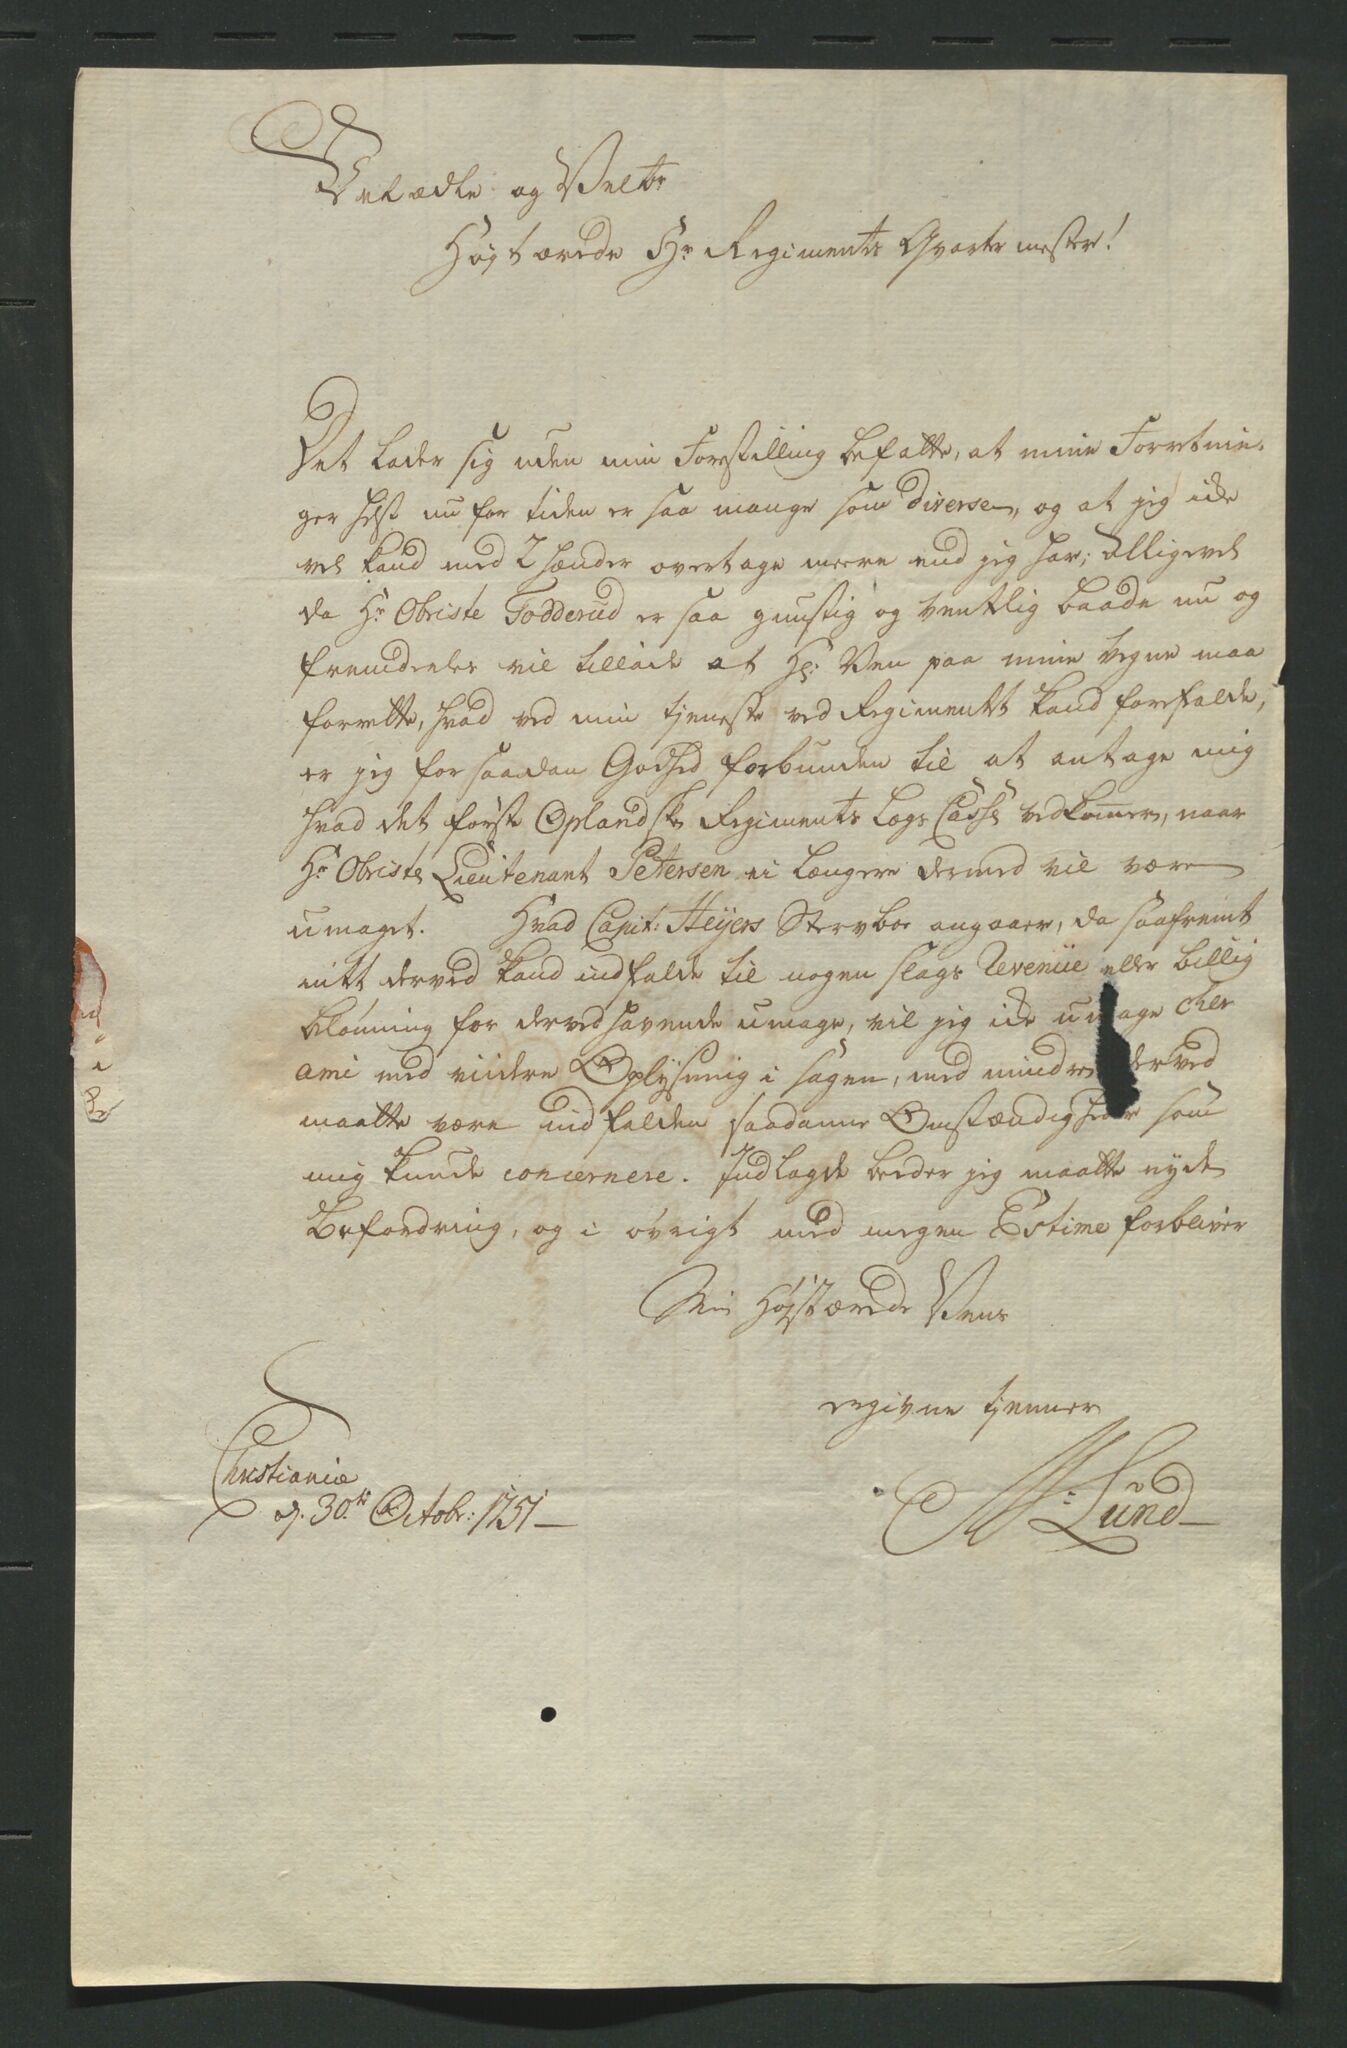 Velædle og Velbr
Høyt ærede Hr Regiments Qvarter mester!
Det lader sig uden min Forestilling befatte, at mine Forretnin-
ger helst nu for tiden er saa mange som diverse, og at jeg icke
vel kand med 2 hænder overtage meere end jeg har; alligevel
da Hr. Obriste Todderud er saa gunstig og ventlig baade nu og
fremdeeles vil tillade at Hr: Ven paa mine vegne maa
forrette, hvad ved min tjeneste ved Regimentet kand forefalde,
er jeg for saadan Godhed forbunden til at antage mig
hvad det første Oplandske Regiments Lags Casse vedkommer, naar
Hr Obriste Lieutenant Petersen ei længere dermed vil være
umaget. Hvad Capit: Heyers Sterboe angaaer, da saafremt
mitt derved kand indfalde til nogen slags Revenüe eller billig
belønning for derved havende umage, vil jeg icke umage cher
ami med viidere Oplysning i sagen, med mindre derved
maatte være indfalden saadanne Omstændigheder som
mig kunde concernere. Indlagde beeder jeg maatte nyde
Befordring, og i øvrigt med megen Estime forbliver
Min Høystærede Vens
Christianiæ
d. 30te Octobr: 1751
redegivne tjenner
M: Lund